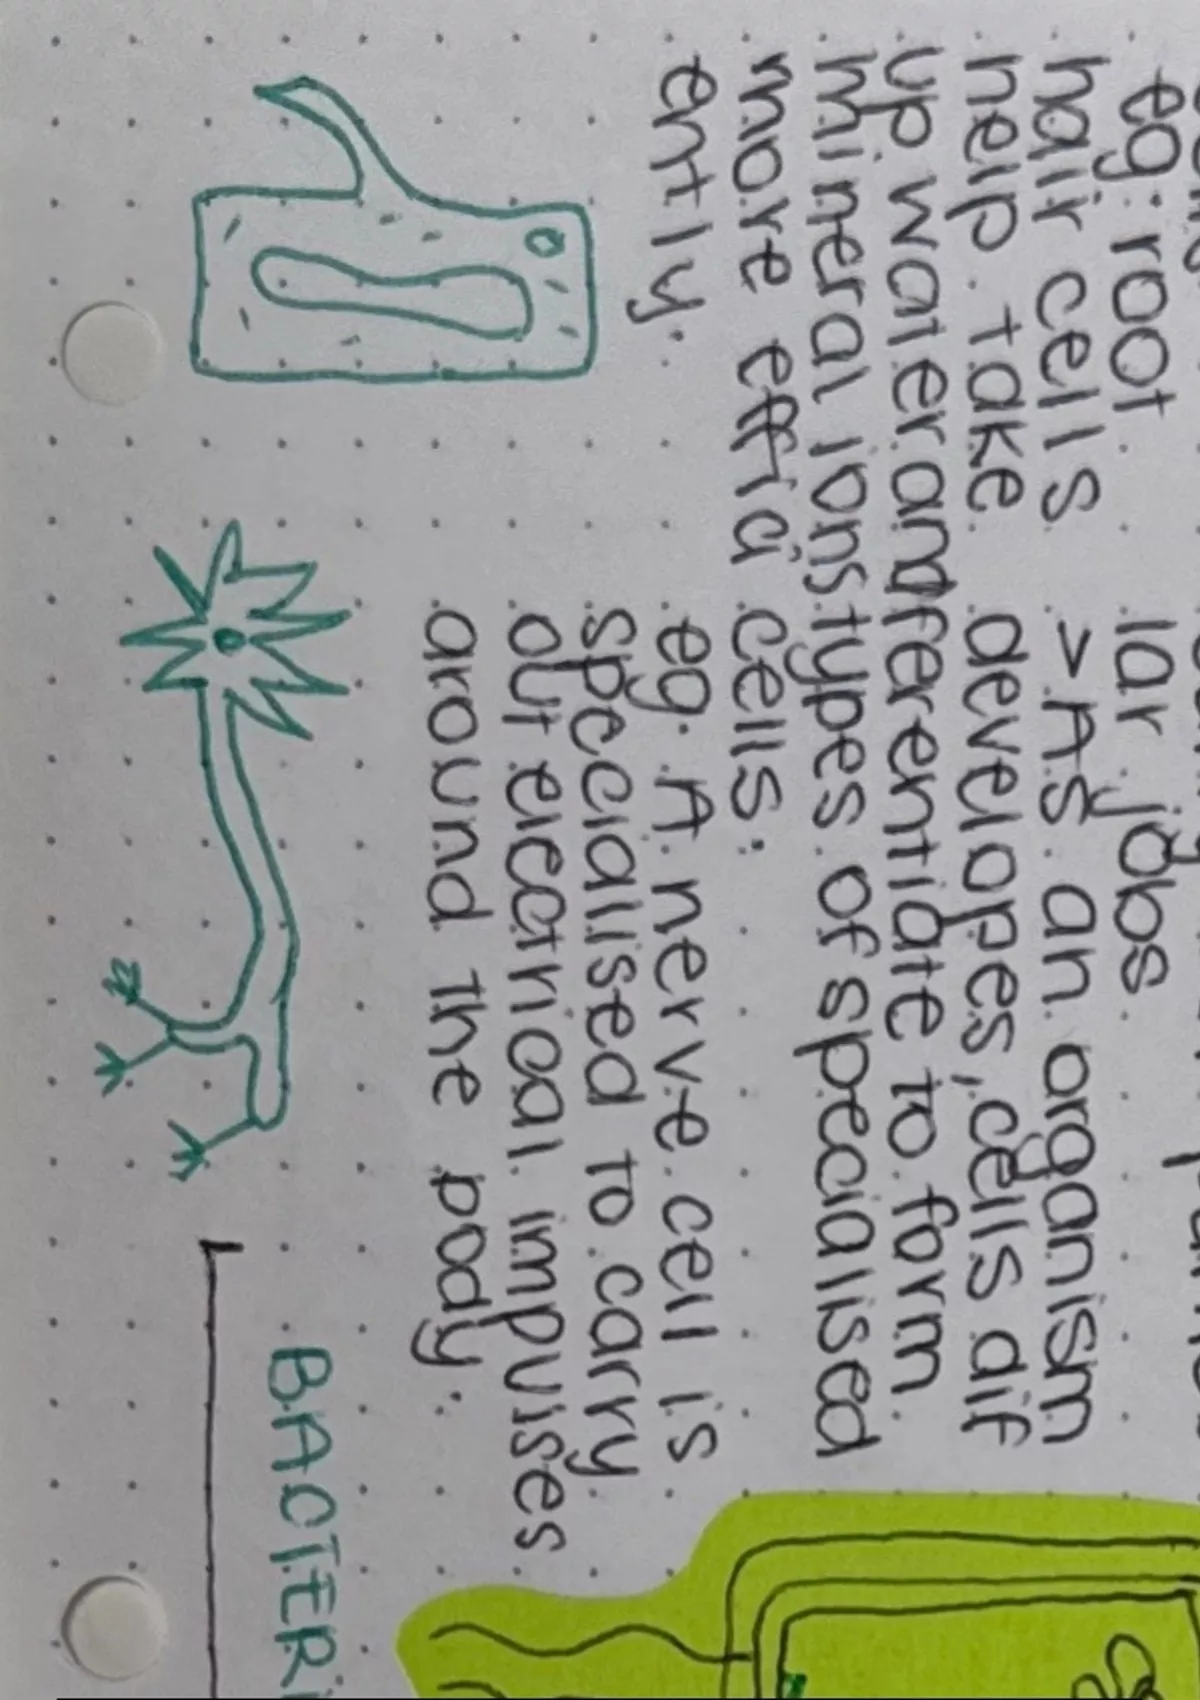 eg: root
hair cells
help take
up water and
mineral ions
more effici
ently.
lar jobs
> As an organism
developes, cells dif
ferentiate to form
types of specialised
cells.
eg. A nerve cell is
specialised to carry
out electrical impulses
around the body.
BACTERI